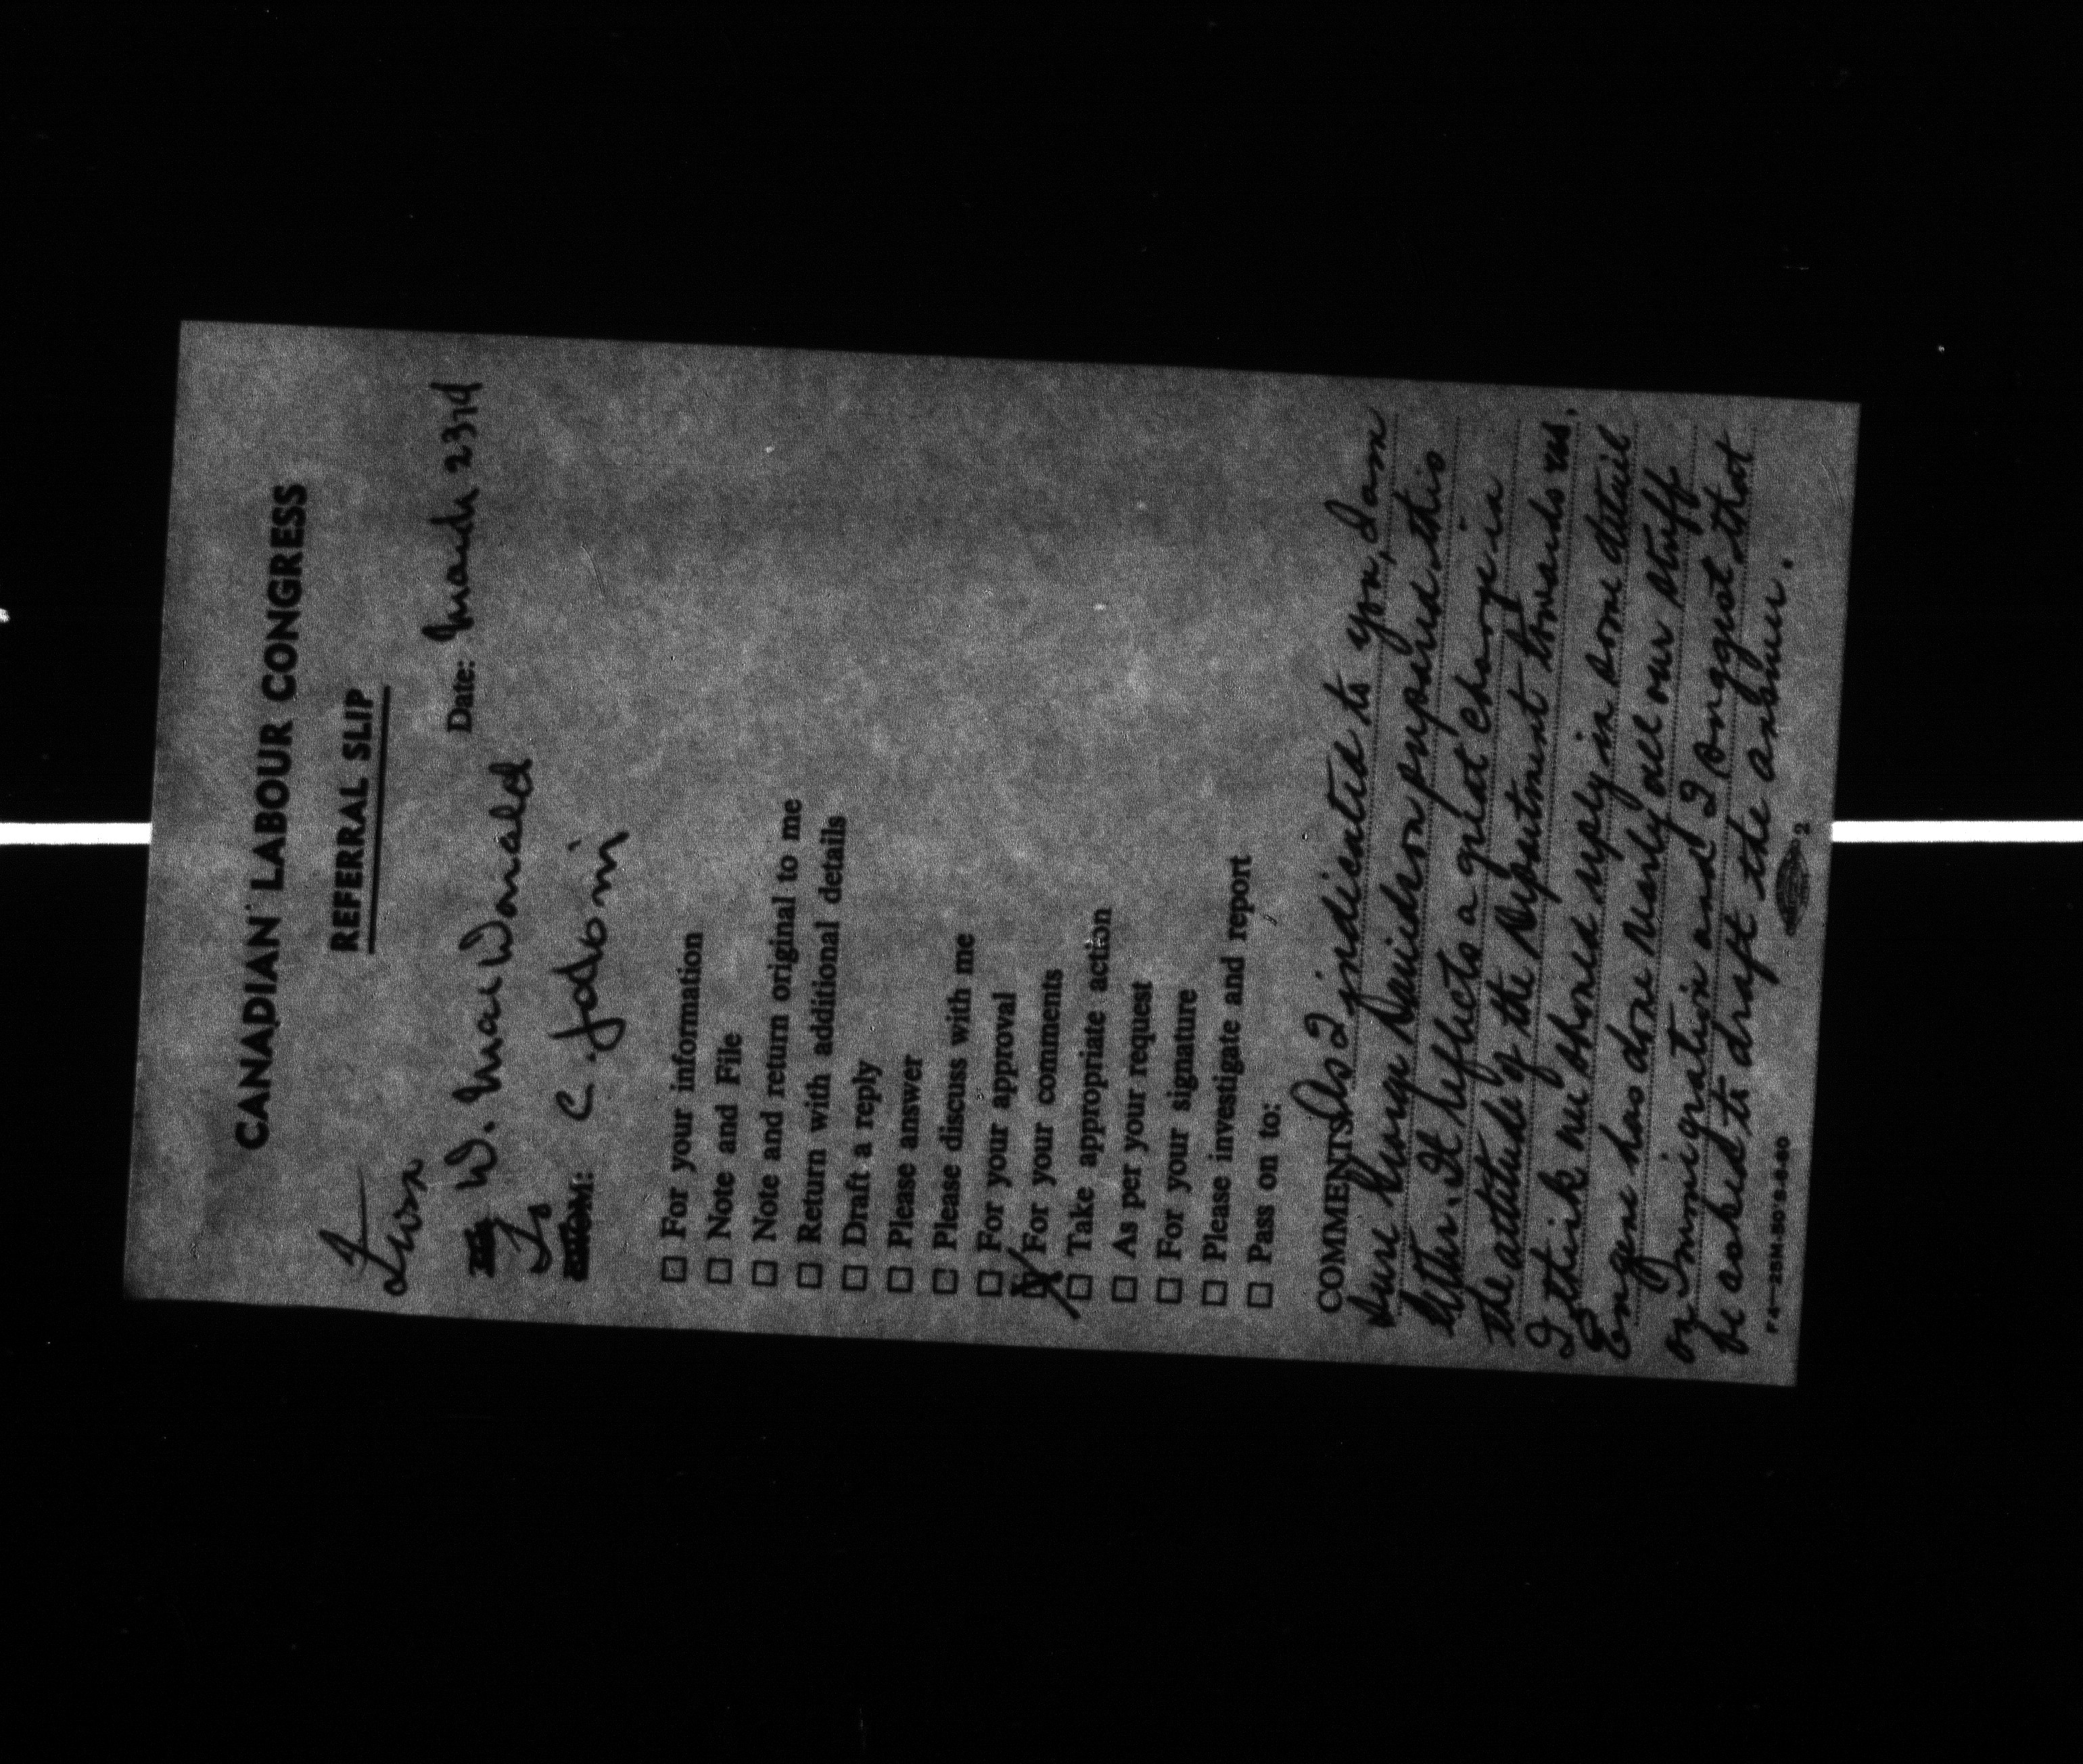 CANADIAN LABOUR CONGRESS
REFERRAL SLIP
From
W. MacDonald
Date: March 23rd
To
FROM: C. Jodoin
☐ For your information
☐ Note and File
☐ Note and return original to me
☐ Return with additional details
☐ Draft a reply
☐ Please answer
☐ Please discuss with me
☐ For your approval
☒ For your comments
☐ Take appropriate action
☐ As per your request
☐ For your signature
☐ Please investigate and report
☐ Pass on to:
COMMENTS As I indicated to you, I am
sure George Davidson prepared this
letter. It reflects a great change in
the attitude of the Department towards us.
I think we should reply in some detail
Eugene has done nearly all our stuff
on Immigration and I suggest that
be asked to draft the answer.
FA-20M-50'S-9-60
2